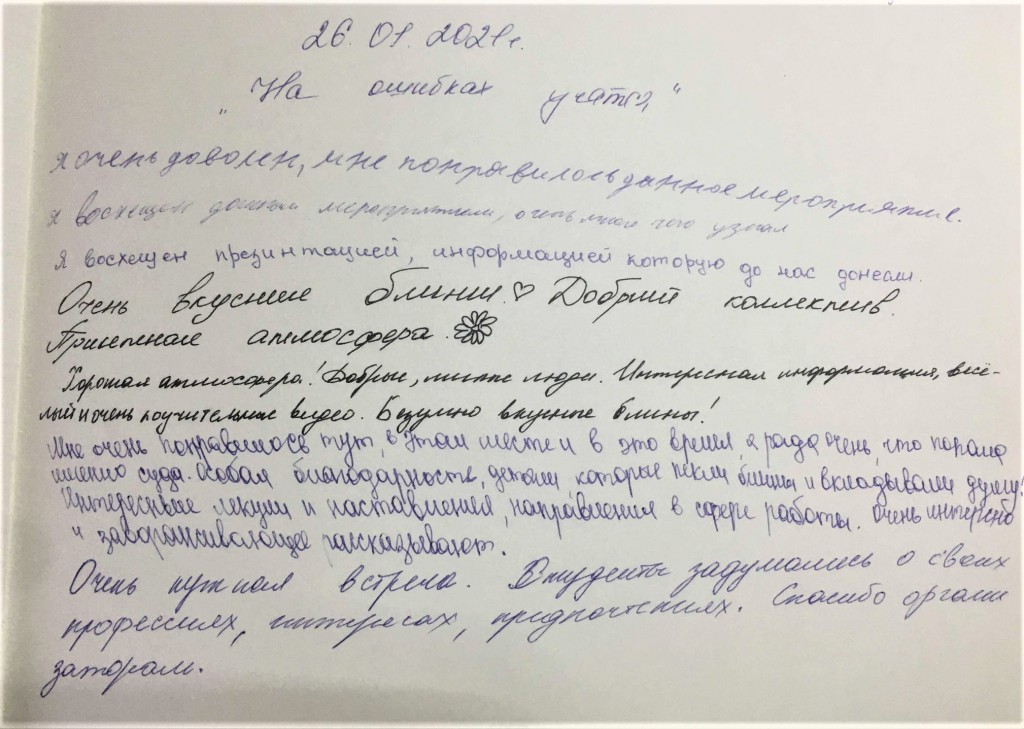 26.01.2021г.
„На ошибках учатся"
я очень доволен, мне понравилось данное мероприятие.
я восхищен данным мероприятием, очень много чего узнал
я восхещен презинтацией, информацией которую до нас донесли.
Очень вкусные блины. ♡ Добрый коллектив.
Приятная атмосфера.
Хорошая атмосфера! Добрые, милые люди. Интересная информация, весё-
лый и очень поучительные видео. Безумно вкусные блины!
Мне очень понравилось тут, в этом месте и в это время, я рада очень, что попала
именно сюда. Особая благодарность, детям, которые пекли блины и вкладывали душу!
Интересные лекции и наставления, направления в сфере работы. Очень интерсно
и завораживающе рассказывают.
Очень нужная встреча. Студенты задумались о своих
профессиях, интересах, предпочтениях. Спасибо органи
заторам.